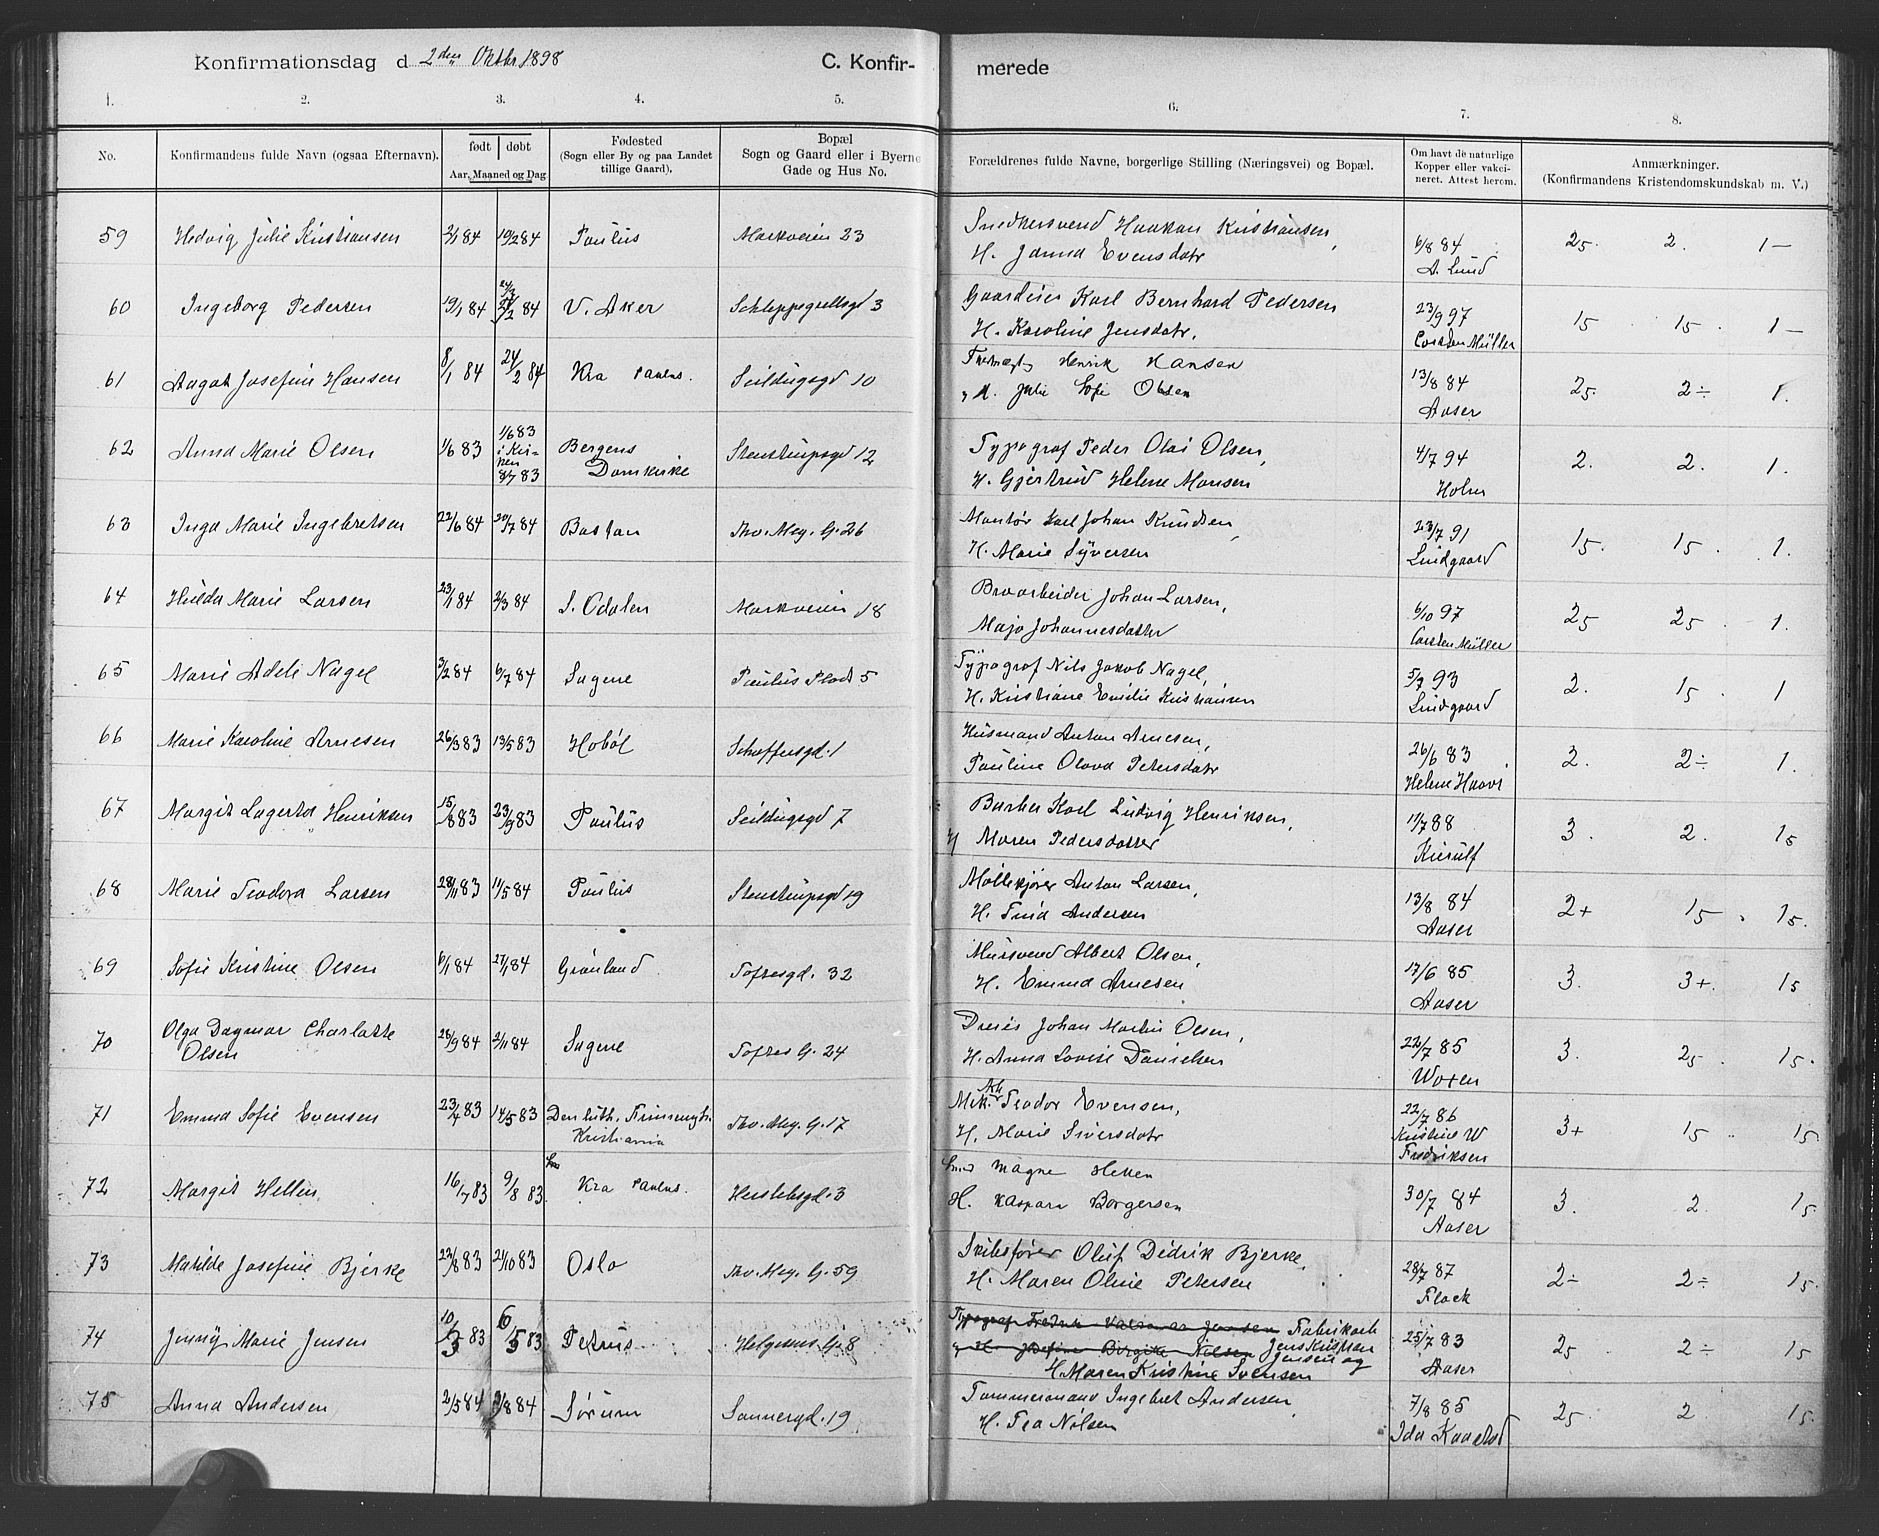 Konfirmationsdag d 2den Oktbr 1898
C. Konfirmerede
1. 2. 3. 4. 5. 6. 7. 8.
No.
Konfirmandens fulde Navn (ogsaa Efternavn).
født døbt
Aar, Maaned og Dag
Fødested
(Sogn eller By og paa Landet
tillige Gaard).
Bopæl
Sogn og Gaard eller i Byerne
Gade og Hus No.
Forældrenes fulde Navne, borgerlige Stilling (Næringsvei) og Bopæl.
Om havt de naturlige
Kopper eller vakci-
neret. Attest herom.
Anmærkninger.
(Konfirmandens Kristendomskundskab m. V.)
59 Hedvig Julie Kristiansen 2/1 84 19/2 84 Paulus Markveien 23
Snedkersvend Haakan Kristiansen,
H. Janna Evensdatr
6/8 84
A. Lund
25. 2. 1—
60 Ingeborg Pedersen 19/1 84 84 V. Aker Schleppegrellsgd 3
Gaardeier Karl Bernhard Pedersen
H. Karoline Jensdatr,
23/9 97
Carsten Müller
15 15. 1—
61 Aagot Josefine Hansen 8/1 84 24/2 84 Kra Paulus. Seildugsgd 10
Henrik Hansen
H. Julie Sofie Olsen
13/8 84
Aaser
25. 2÷ 1.
62 Anna Marie Olsen 1/6 83 1/6 83 i Kir-
ken 8/7 83
Bergens
Domkirke
Stenstrupsgd 12
Typograf Peder Olai Olsen,
H. Gjertrud Helene Monsen
4/7 94
Holm
2. 2. 1.
63 Inga Marie Ingebretsen 22/6 84 20/7 84 Bastan Thv. Mey. G. 26
Mantør Karl Johan Knudsen,
H. Marie Syversen
23/7 91
Lindgaard
15. 15. 1.
64 Hilda Marie Larsen 23/1 84 2/3 84 S. Odalen Markveien 18
Broarbeider Johan Larsen,
Maja Johannesdatter
6/10 97
Carsten Müller
25 25. 1.
65 Marie Adele Nagel 3/2 84 6/7 84 Sagene Paulus Plads 5
Typograf Nils Jakob Nagel,
H. Kristiane Emilie Kristiansen
5/7 93
Lindgaard
2. 15. 1
66 Marie Karoline Arnesen 26/3 83 13/5 83 Hobøl Schaffersgd. 1
Husmand Anton Arnesen,
Pauline Olava Petersdatr
26/6 83
Helene Haavi
2. 2÷ 1.
67 Margit Lagerta Henriksen 15/8 83 23/9 83 Paulus Seildugsgd 7
Barber Karl Ludvig Henriksen,
H Maren Pedersdatter
17/7 88
Kierulf
3. 2. 15
68 Marie Teodora Larsen 28/11 83 11/5 84 Paulus Stenstrupsgd 19
Møllekjører Anton Larsen,
H. Tina Andersen
13/8 84
Aaser
2+ 15. 15.
69 Sofie Kristine Olsen 6/1 84 27/1 84 Grønland Toftesgd. 32
Mursvend Albert Olsen,
H. Emma Arnesen
17/6 85
Aaser
3. 3+. 15
70 Olga Dagmar Charlotte
Olsen
28/9 84 2/11 84 Sagene Toftes G. 24
Dreier Johan Martin Olsen,
H. Anna Lovise Danielsen
22/7 85
Woxen
3. 25. 15.
71 Emma Sofie Evensen 23/4 83 14/5 83 Den luth. Frimenigh.
Kristiania
Thv. Mey. G. 17
Mek. Arb. Teodor Evensen,
H. Marie Siversdatr
22/7 86
Kristine W
Fredriksen
3+ 15 15.
72 Margit Hellen 16/7 83 9/8 83 Kra Paulus. Herslebsgd. 3
Smed Magne Hellen
H. Kaspara Borgersen
30/7 84
Aaser
3. 2. 15.
73 Matilde Josefine Bjerke 22/8 83 21/10 83 Oslo Thv. Mey. G. 59
Skibsfører Oluf Didrik Bjerke,
H. Maren Oline Petersen
28/7 87
Flack
2÷ 2÷ 15.
74 Jenny Marie Jensen 10/3 83 6/5 83 Petrus Helgesens G. 8
Typograf Fredrik Valdemar Jensen Fabrikarb
og H. Josefine Birgitte Nilsen Jens Kristian
Jensen og
H. Maren Kristine Svensen
25/7 83
Aaser
25 2÷ 15
75 Anna Andersen 2/5 84 3/8 84 Sørum Sannergd. 19
Tømmermand Ingebret Andersen,
H. Tea Nilsen
7/8 85
Ida
25. 2. 15.